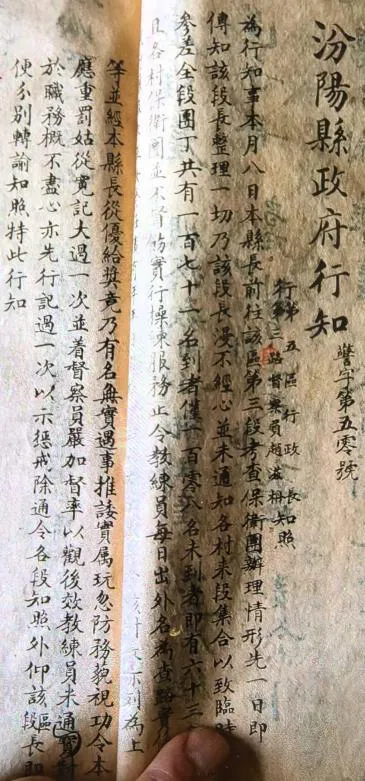 汾陽縣政府行知
警字第五零號
行第五區行政長
第三路督察員趙滋相知照
為行知事本月八日本縣長前往該區第三段考查保衛團辦理情形先一日即
傳知該段長整理一切乃該段長漫不經心並未通知各村來段集合以致臨時
參差全段團丁共有一百七十一名到者僅一百零八名未到者即有六十三
且各村保衛團並不督飭實行操束服務止令教練員每日出外名為查路實
等並經本縣長從優給獎竟乃有名無實遇事推諉實属玩忽防務藐視功令本
應重罰姑從寬記大過一次並着督察員嚴加督率以觀後效教練員未通
於職務概不盡心亦先行記過一次以示懲戒除通令各段知照外仰該區段長即
便分別轉諭知照特此行知